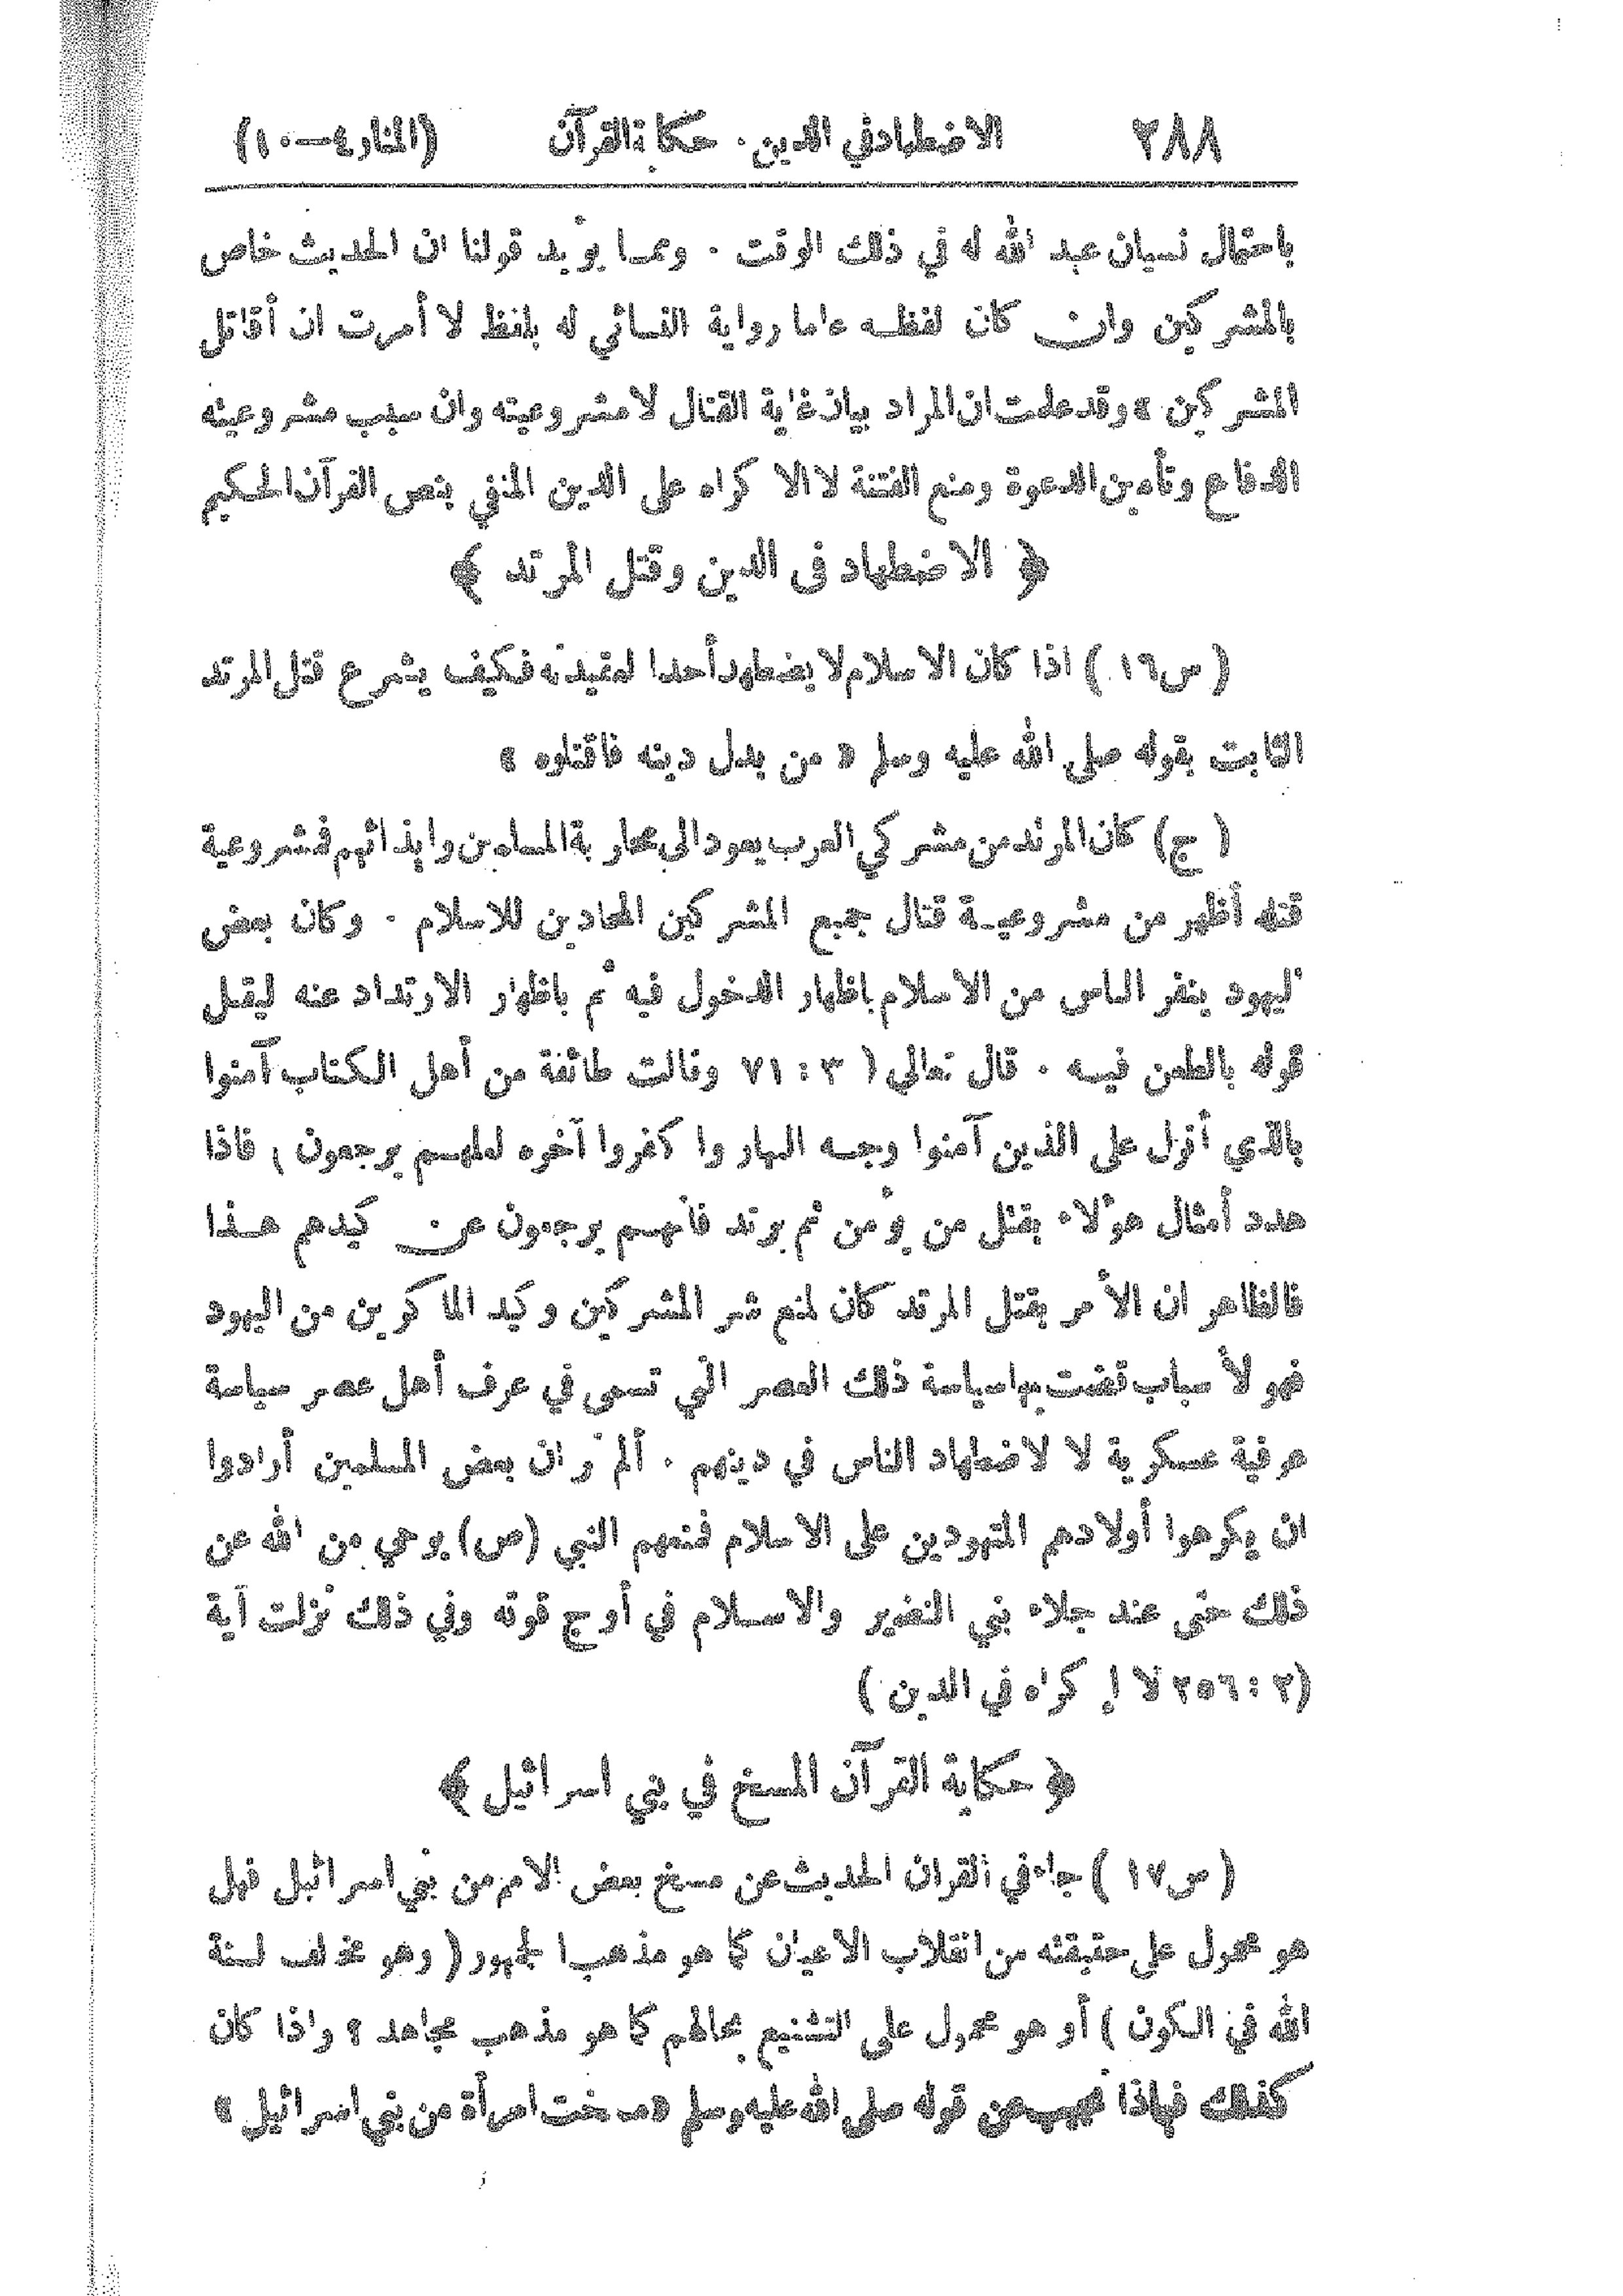 ٢٨٨ الاضطهاد في الدين . حكاية القرآن (المنار ٤—١٠)
باحتمال نسيان عبد الله له في ذلك الوقت . ومما يؤيد قولنا ان الحديث خاص
بالمشركين وان كان لفظه عاما رواية النسائي له بلفظ لا أمرت ان أقاتل
المشركين » وقد علمت ان المراد بيان غاية القتال لا مشروعيته وان سبب مشروعيته
الدفاع وتأمين الدعوة ومنع الفتنة لا الاكراه على الدين المنفي بنص القرآن الحكيم
﴿ الاضطهاد فى الدين وقتل المرتد ﴾
( س١٦ ) اذا كان الاسلام لا يضطهد أحدا لعقيدته فكيف يشرع قتل المرتد
الثابت بقوله صلى الله عليه وسلم « من بدل دينه فاقتلوه »
( ج ) كان المرتد من مشركي العرب يعود الى محاربة المسلمين وايذائهم فمشروعية
قتله أظهر من مشروعية قتال جميع المشركين المحادين للاسلام . وكان بعض
اليهود ينفر الناس من الاسلام باظهار الدخول فيه ثم باظهار الارتداد عنه ليقبل
قوله بالطعن فيه . قال تعالى ( ٣ : ٧١ وقالت طائفة من أهل الكتاب آمنوا
بالذي أنزل على الذين آمنوا وجه النهار واكفروا آخره لعلهم يرجعون ) فاذا
هدد أمثال هؤلاء بقتل من يؤمن ثم يرتد فانهم يرجعون عن كيدهم هذا
فالظاهر ان الأمر بقتل المرتد كان لمنع شر المشركين وكيد الماكرين من اليهود
فهو لأسباب قضت بها سياسة ذلك العصر التي تسمى في عرف أهل عصر سياسة
عرفية عسكرية لا لاضطهاد الناس في دينهم . ألم تر ان بعض المسلمين أرادوا
ان يكرهوا أولادهم المتهودين على الاسلام فمنعهم النبي (ص) بوحي من الله عن
ذلك حتى عند جلاء بني النضير والاسلام في أوج قوته وفي ذلك نزلت آية
(٢ : ٢٥٦ لا إكراه في الدين )
﴿ حكاية القرآن المسخ في بني اسرائيل ﴾
( س١٧ ) جاء في القران الحديث عن مسخ بعض الامم من بني اسرائيل فهل
هو محمول على حقيقته من انقلاب الاعيان كما هو مذهب الجمهور ( وهو مخالف لسنة
الله في الكون ) أو هو محمول على التشنيع بحالهم كما هو مذهب مجاهد ؟ واذا كان
كذلك فبماذا نجيب عن قوله صلى الله عليه وسلم « مسخت امرأة من بني اسرائيل »